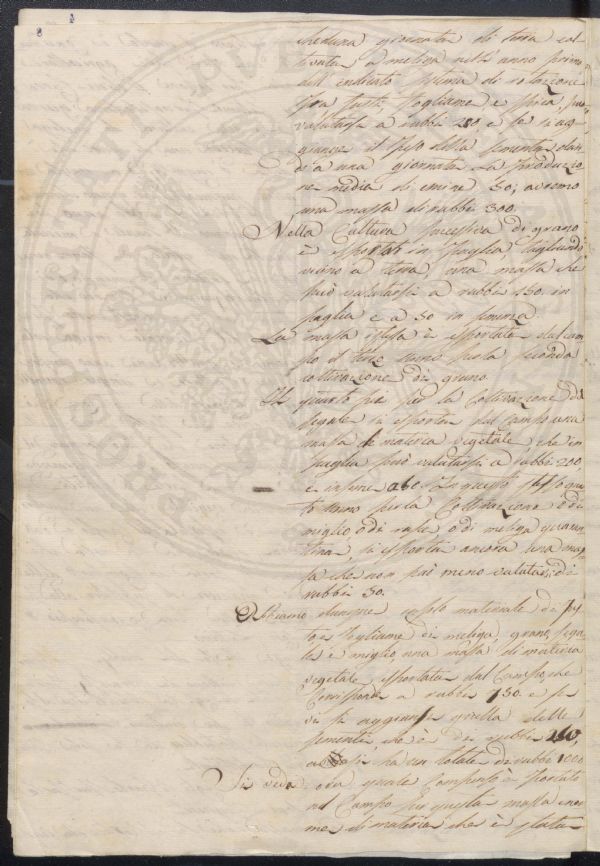 cheduna giornata di terra col-
tivata a meliga nell' anno primo
dell' indicato sistema di rotazione
fra fusti fogliame e spica, può
valutarsi a rubbi 250. e se si ag-
giunge il peso della semente dan-
do a una giornata la produzio
ne media di emine 50; avremo
una massa di rubbi 300.
Nella Cultura successiva di grano
è esportata in paglia tagliando
vicino a terra, una massa che
può valutarsi a rubbi 150. in
paglia e a 50 in semenza.
La massa istessa è esportata dal cam-
po il terzo anno per la seconda
coltivazione di grano.
Il quarto poi per la Coltivazione di
segale si esporta dal Campo una
massa di materia vegetale che in
paglia può valutarsi a rubbi 200,
e in seme a 60. In questo stesso quar
to anno per la Coltivazione o di
miglio o di o di meliga quaran
tina si esporta ancora una mas-
sa che non può meno valutarsi di
rubbi 50.
Abbiamo dunque solo materiale di fus
to e fogliame di meliga, grano, sega
le, e miglio una massa di materia
vegetale esportata dal Campo, che
corrisponde a rubbi 750. e se
vi si aggiunge quella delle
sementi, che è di rubbi
si ha un totale di rubbi 1000
Si veda ora quale compenso è portato
al Campo per questa massa enor
me di materia che è stata